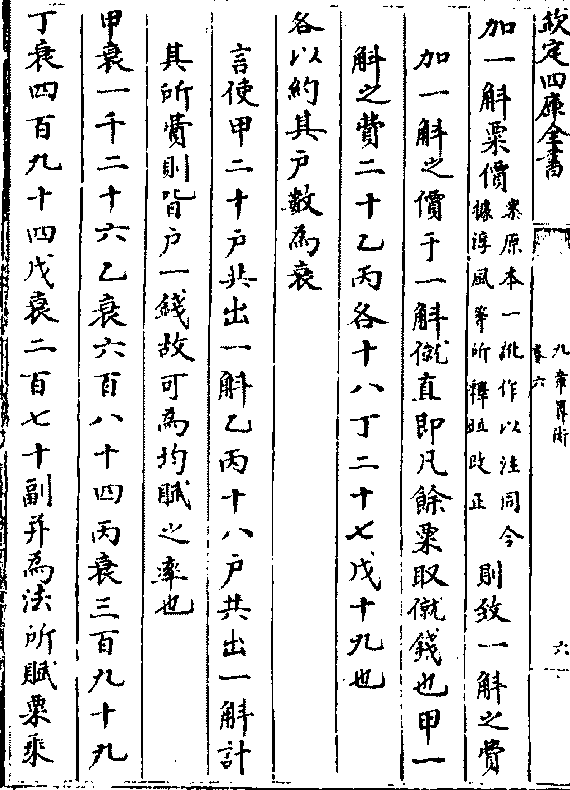 欽定四庫全書
九章算術
卷六
六
加一斛粟價案原本一訛作以注同今
據淳風等所釋並改正則致一斛之費
加一斛之價于一斛僦直即凡餘粟取僦錢也甲一
斛之費二十乙丙各十八丁二十七戊十九也
各以約其戶數為衰
言使甲二十戶共出一斛乙丙十八戶共出一斛計
其所費則皆戶一錢故可為均賦之率也
甲衰一千二十六乙衰六百八十四丙衰三百九十九
丁衰四百九十四戊衰二百七十副并為法所賦粟乘